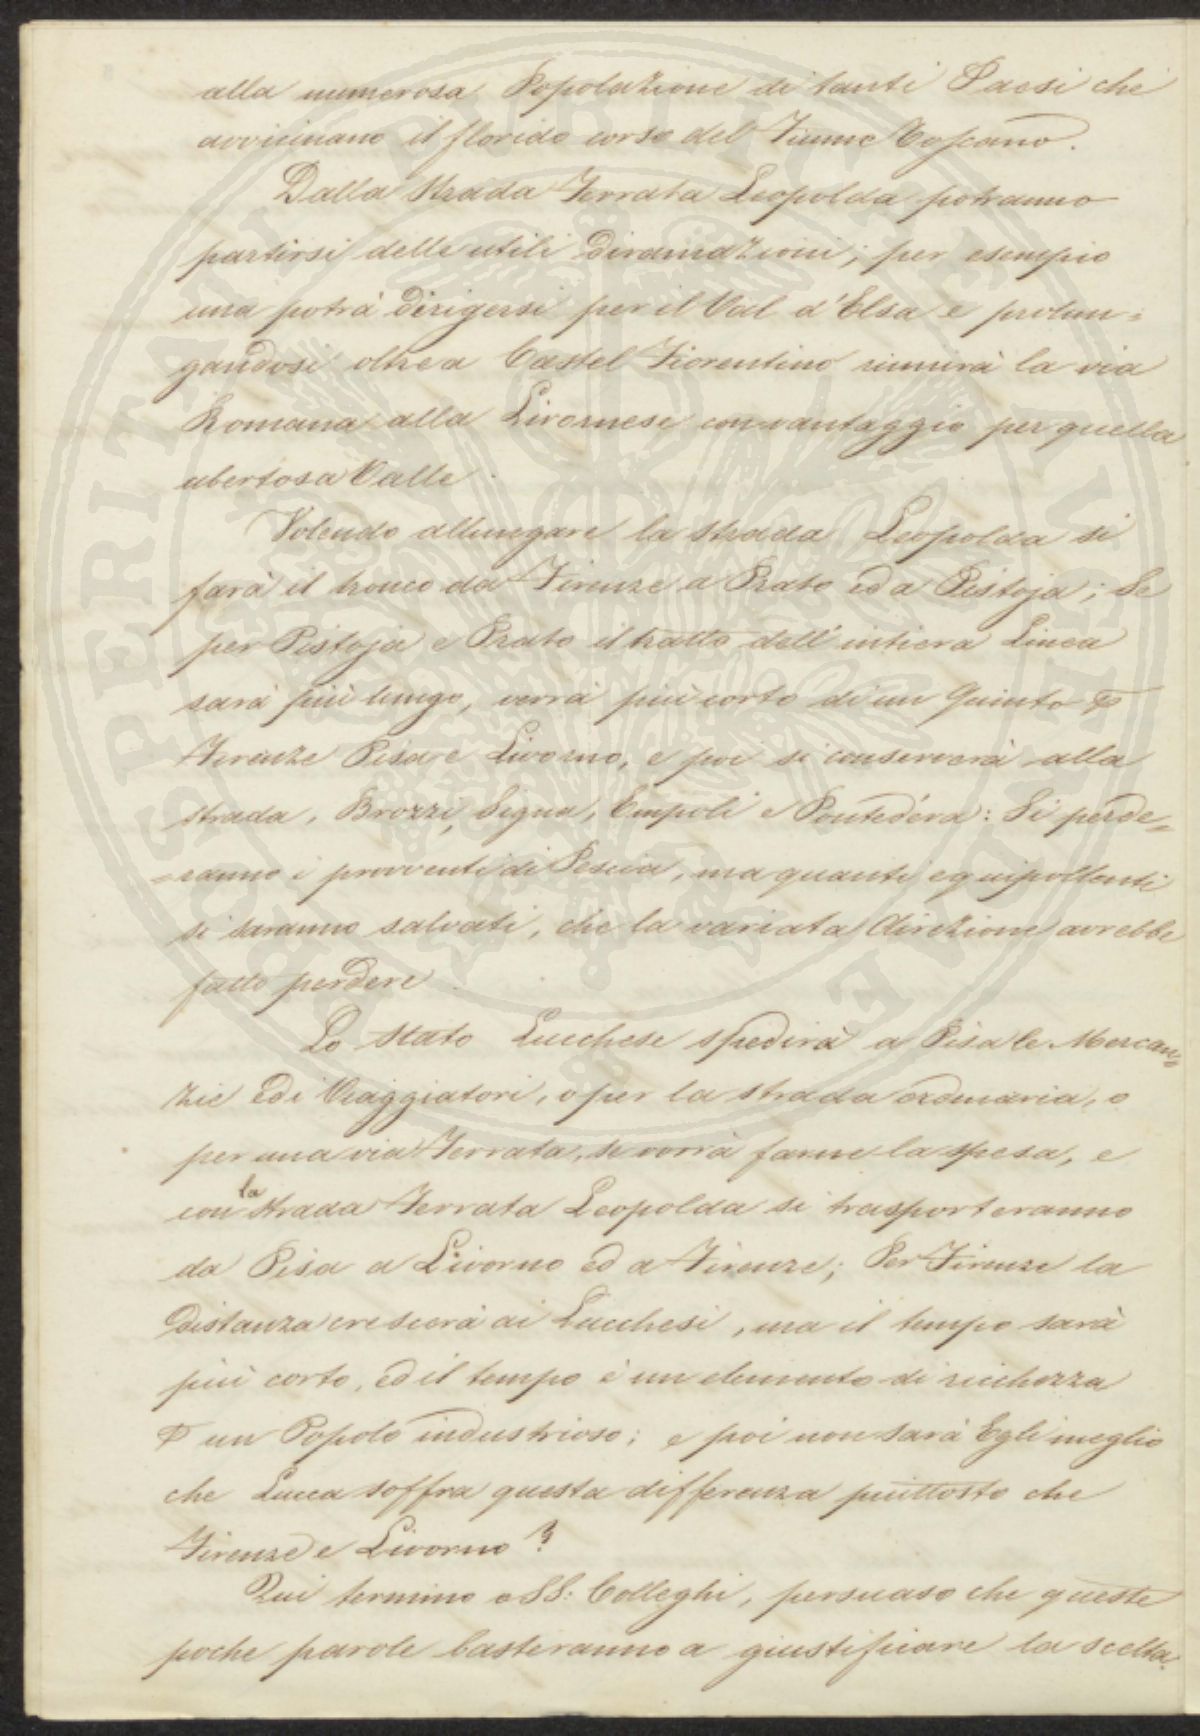 alla numerosa Popolazione di tanti Paesi che
avvicinano il florido corso del Fiume Toscano.
Dalla Strada Ferrata Leopolda potranno
partirsi delle utili Diramazioni; per esempio
una potrà Dirigersi per il Val d'Elsa e prolun=
gandosi oltre a Castel Fiorentino riunirà la via
Romana alla Livornese con vantaggio per quella
ubertosa Valle.
Volendo allungare la strada Leopolda si
farà il tronco da Firenze a Prato ed a Pistoja; Se
per Pistoja e Prato il tratto dell'intiera Linea
sarà più lungo, verrà più corto di un Quinto p
Firenze Pisa e Livorno, e poi si conserverà alla
strada, Brozzi, Signa, Empoli e Pontedera: Si perde=
=ranno i provventi di Pescia, ma quanti equipollenti
si saranno salvati, che la variata Direzione avrebbe
fatto perdere.
Lo Stato Lucchese spedirà a Pisa le Mercan=
zie ed i Viaggiatori, o per la strada ordinaria, o
per una via Ferrata, se vorrà farne la spesa, e
con la Strada Ferrata Leopolda si trasporteranno
da Pisa a Livorno ed a Firenze; Per Firenze la
Distanza crescerà ai Lucchesi, ma il tempo sarà
più corto, ed il tempo è un elemento di ricchezza
p un Popolo industrioso; e poi non sarà Egli meglio
che Lucca soffra questa differenza piuttosto che
Firenze e Livorno?
Qui termino o SS: Colleghi, persuaso che queste
poche parole basteranno a giustificare la scelta
PROSPERITATI PUBLICAE AUGENDAE